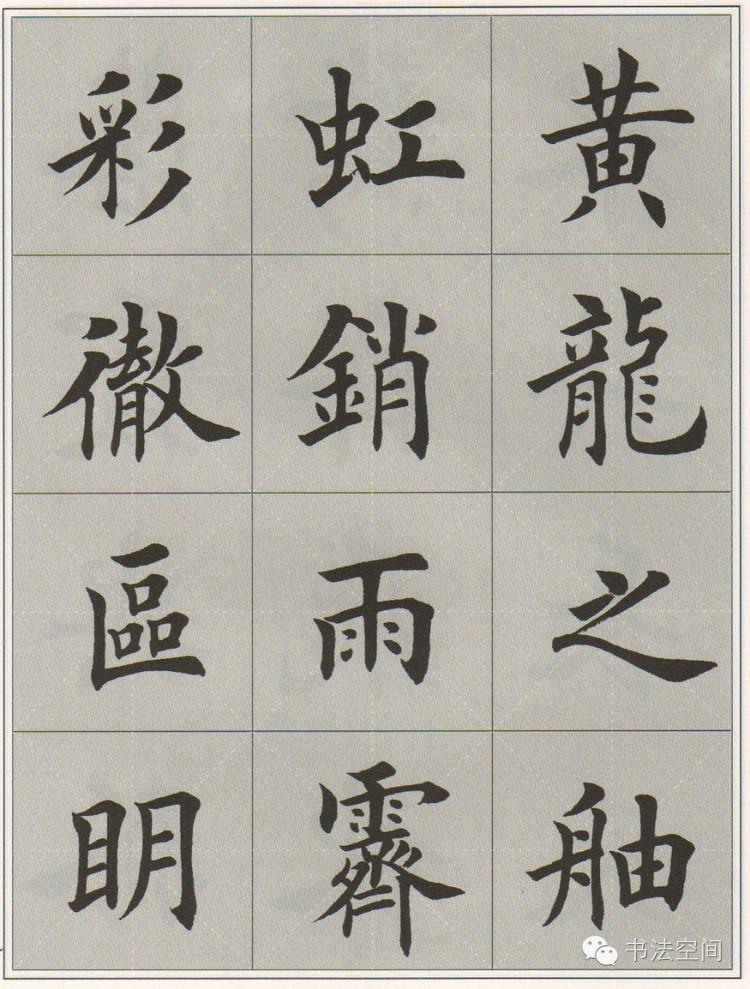 黄龍之舳
虹銷雨霽
彩徹區明
书法空间